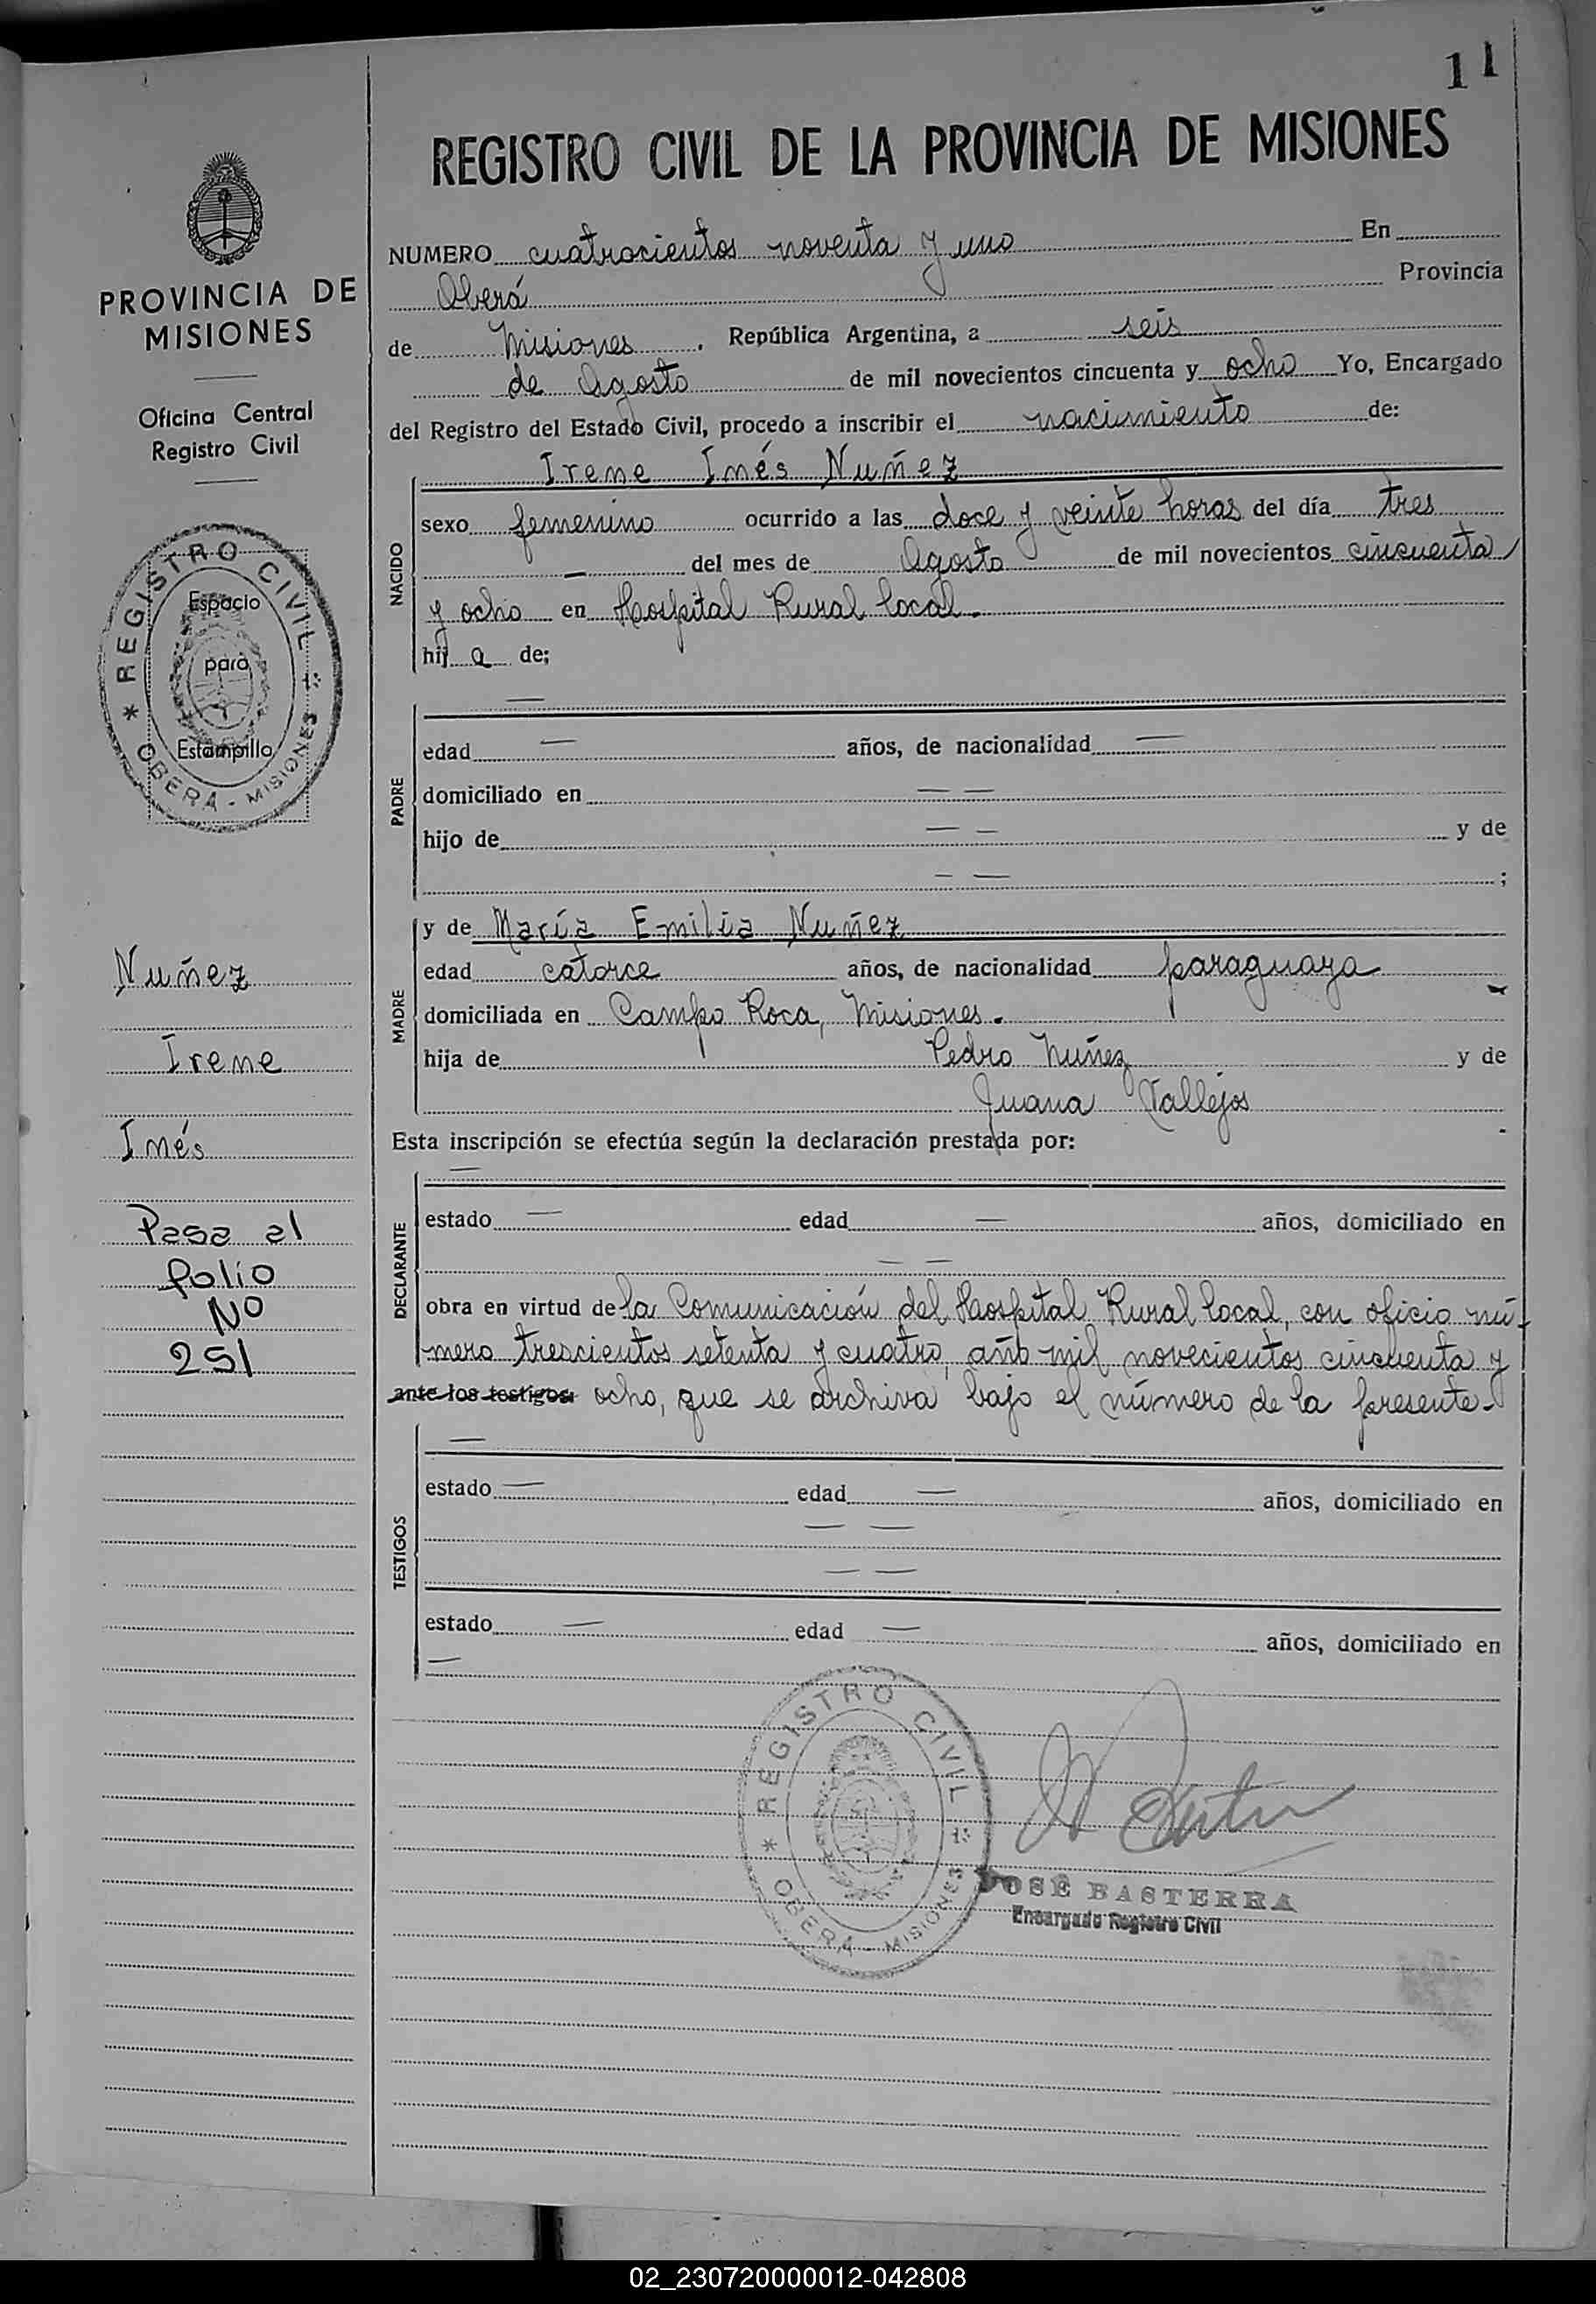 11
REGISTRO CIVIL DE LA PROVINCIA DE MISIONES
NUMERO cuatrocientos noventa y uno En
Oberá Provincia
de Misiones. República Argentina, a seis
de Agosto de mil novecientos cincuenta y ocho Yo, Encargado
del Registro del Estado Civil, procedo a inscribir el nacimiento de:
Irene Inés Nuñez
NACIDO
sexo femenino ocurrido a las doce y veinte horas del día tres
— del mes de Agosto de mil novecientos cincuenta
y ocho en Hospital Rural local.
hij a de;
—
PADRE
edad — años, de nacionalidad —
domiciliado en — —
hijo de — — y de
— — ;
MADRE
y de María Emilia Nuñez
edad catorce años, de nacionalidad paraguaya
domiciliada en Campo Roca, Misiones.
hija de Pedro Nuñez y de
Juana Vallejos
Esta inscripción se efectúa según la declaración prestada por:
—
DECLARANTE
estado — edad — años, domiciliado en
— —
obra en virtud de la Comunicación del Hospital Rural local, con oficio nú-
mero trescientos setenta y cuatro, año mil novecientos cincuenta y
ante los testigos: ocho, que se archiva bajo el número de la presente.
—
TESTIGOS
estado — edad — años, domiciliado en
— —
— —
estado — edad — años, domiciliado en
—
REGISTRO CIVIL
* OBERÁ - MISIONES
JOSÉ BASTERRA
Encargado Registro Civil
PROVINCIA DE
MISIONES
Oficina Central
Registro Civil
REGISTRO CIVIL
* OBERÁ - MISIONES
Espacio
para
Estampilla
Nuñez
Irene
Inés
Pasa al
folio
No
251
02_230720000012-042808